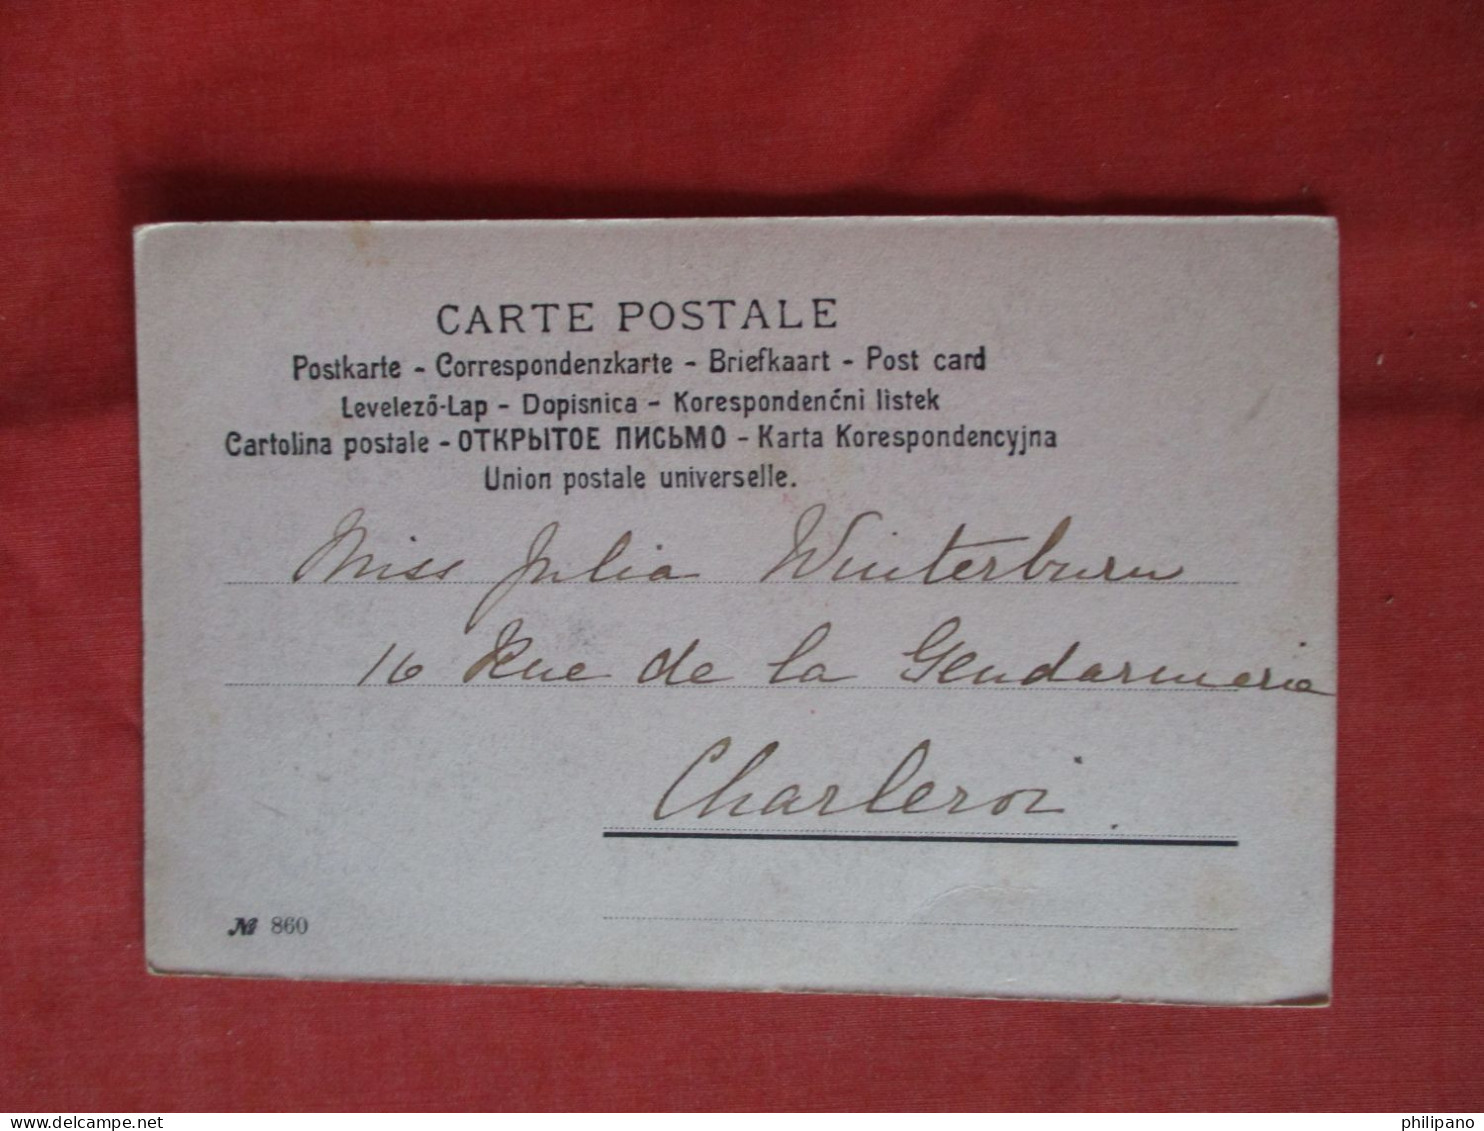 CARTE POSTALE
Postkarte - Correspondenzkarte - Briefkaart - Post card
Levelező-Lap - Dopisnica - Korespondenčni listek
Cartolina postale - ОТКРЫТОЕ ПИСЬМО - Karta Korespondencyjna
Union postale universelle.
Miss Julia Winterburn
16 Rue de la Gendarmerie
Charleroi.
№ 860
philipano